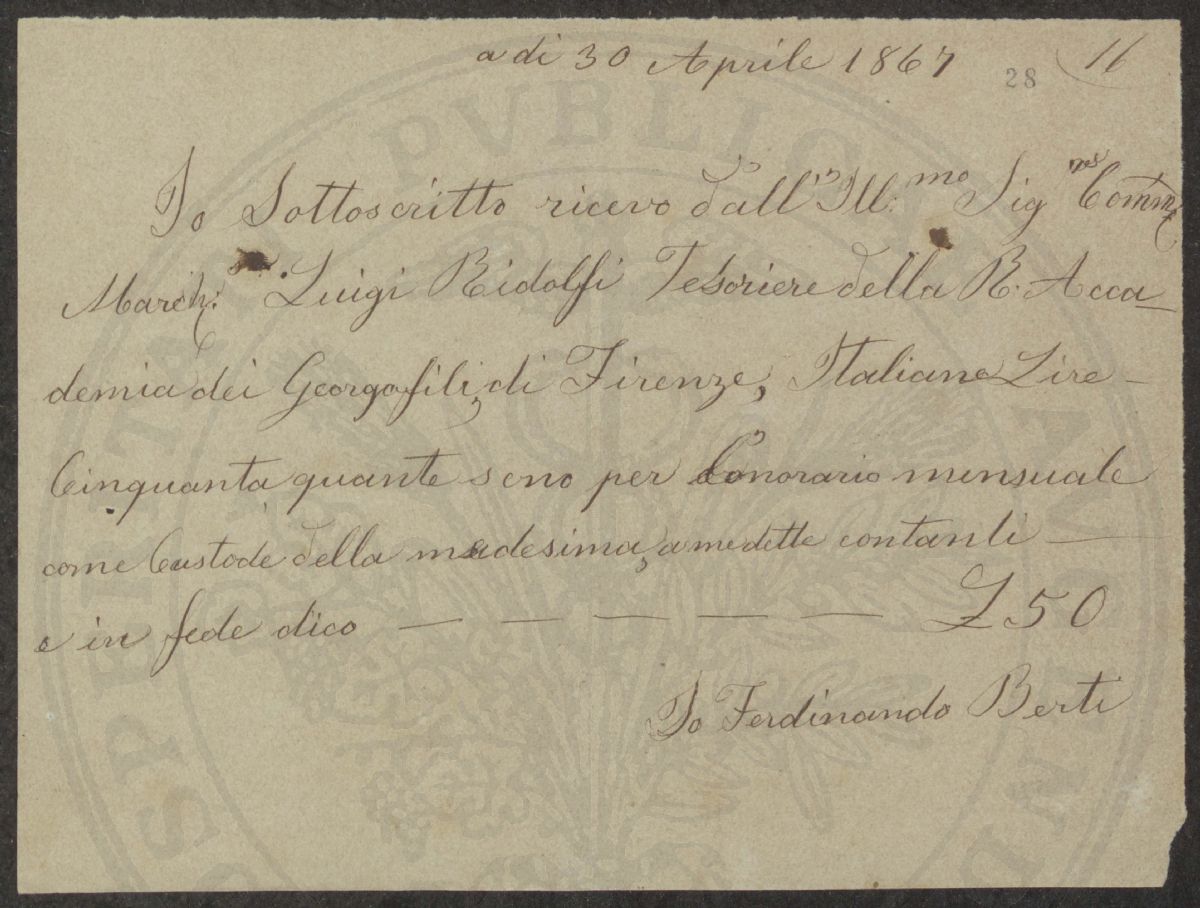 a di 30 Aprile 1867
28
11
Io Sottoscritto ricevo dall' Ill.mo Sig
March. Luigi Ridolfi Tesoriere della R. Acca-
demia dei Georgofili, di Firenze, Italiane Lire -
Cinquanta quante seno per Lonorario mensuale
come Custode della medesima, a medette contanti —
e in fede dico — — — — — £50
Io Ferdinando Berti
PROSPERITATI PVBLICAE AVGENDAE